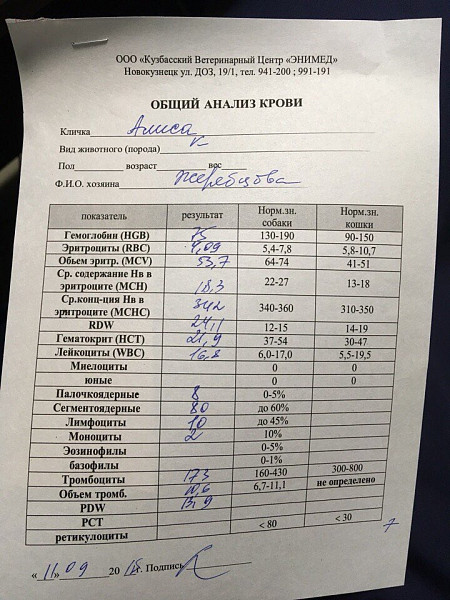 ООО «Кузбасский Ветеринарный Центр «ЭНИМЕД»
Новокузнецк ул. ДОЗ, 19/1, тел. 941-200 ; 991-191
ОБЩИЙ АНАЛИЗ КРОВИ
Кличка Алиса
Вид животного (порода) к
Пол возраст вес
Ф.И.О. хозяина Жеребцова
показатель результат Норм.зн. собаки Норм.зн. кошки
Гемоглобин (HGB) 75 130-190 90-150
Эритроциты (RBC) 4,09 5,4-7,8 5,8-10,7
Объем эритр. (MCV) 53,7 64-74 41-51
Ср. содержание Нв в эритроците (MCH) 18,3 22-27 13-18
Ср.конц-ция Нв в эритроците (MCHC) 342 340-360 310-350
RDW 24,1 12-15 14-19
Гематокрит (HCT) 21,9 37-54 30-47
Лейкоциты (WBC) 16,8 6,0-17,0 5,5-19,5
Миелоциты 0 0
юные 0 0
Палочкоядерные 8 0-5%
Сегментоядерные 80 до 60%
Лимфоциты 10 до 45%
Моноциты 2 10%
Эозинофилы 0-5%
базофилы 0-1%
Тромбоциты 173 160-430 300-800
Объем тромб. 10,6 6,7-11,1 не определено
PDW 13,9
PCT
ретикулоциты < 80 < 30
7
«11» 09 20 г. Подпись